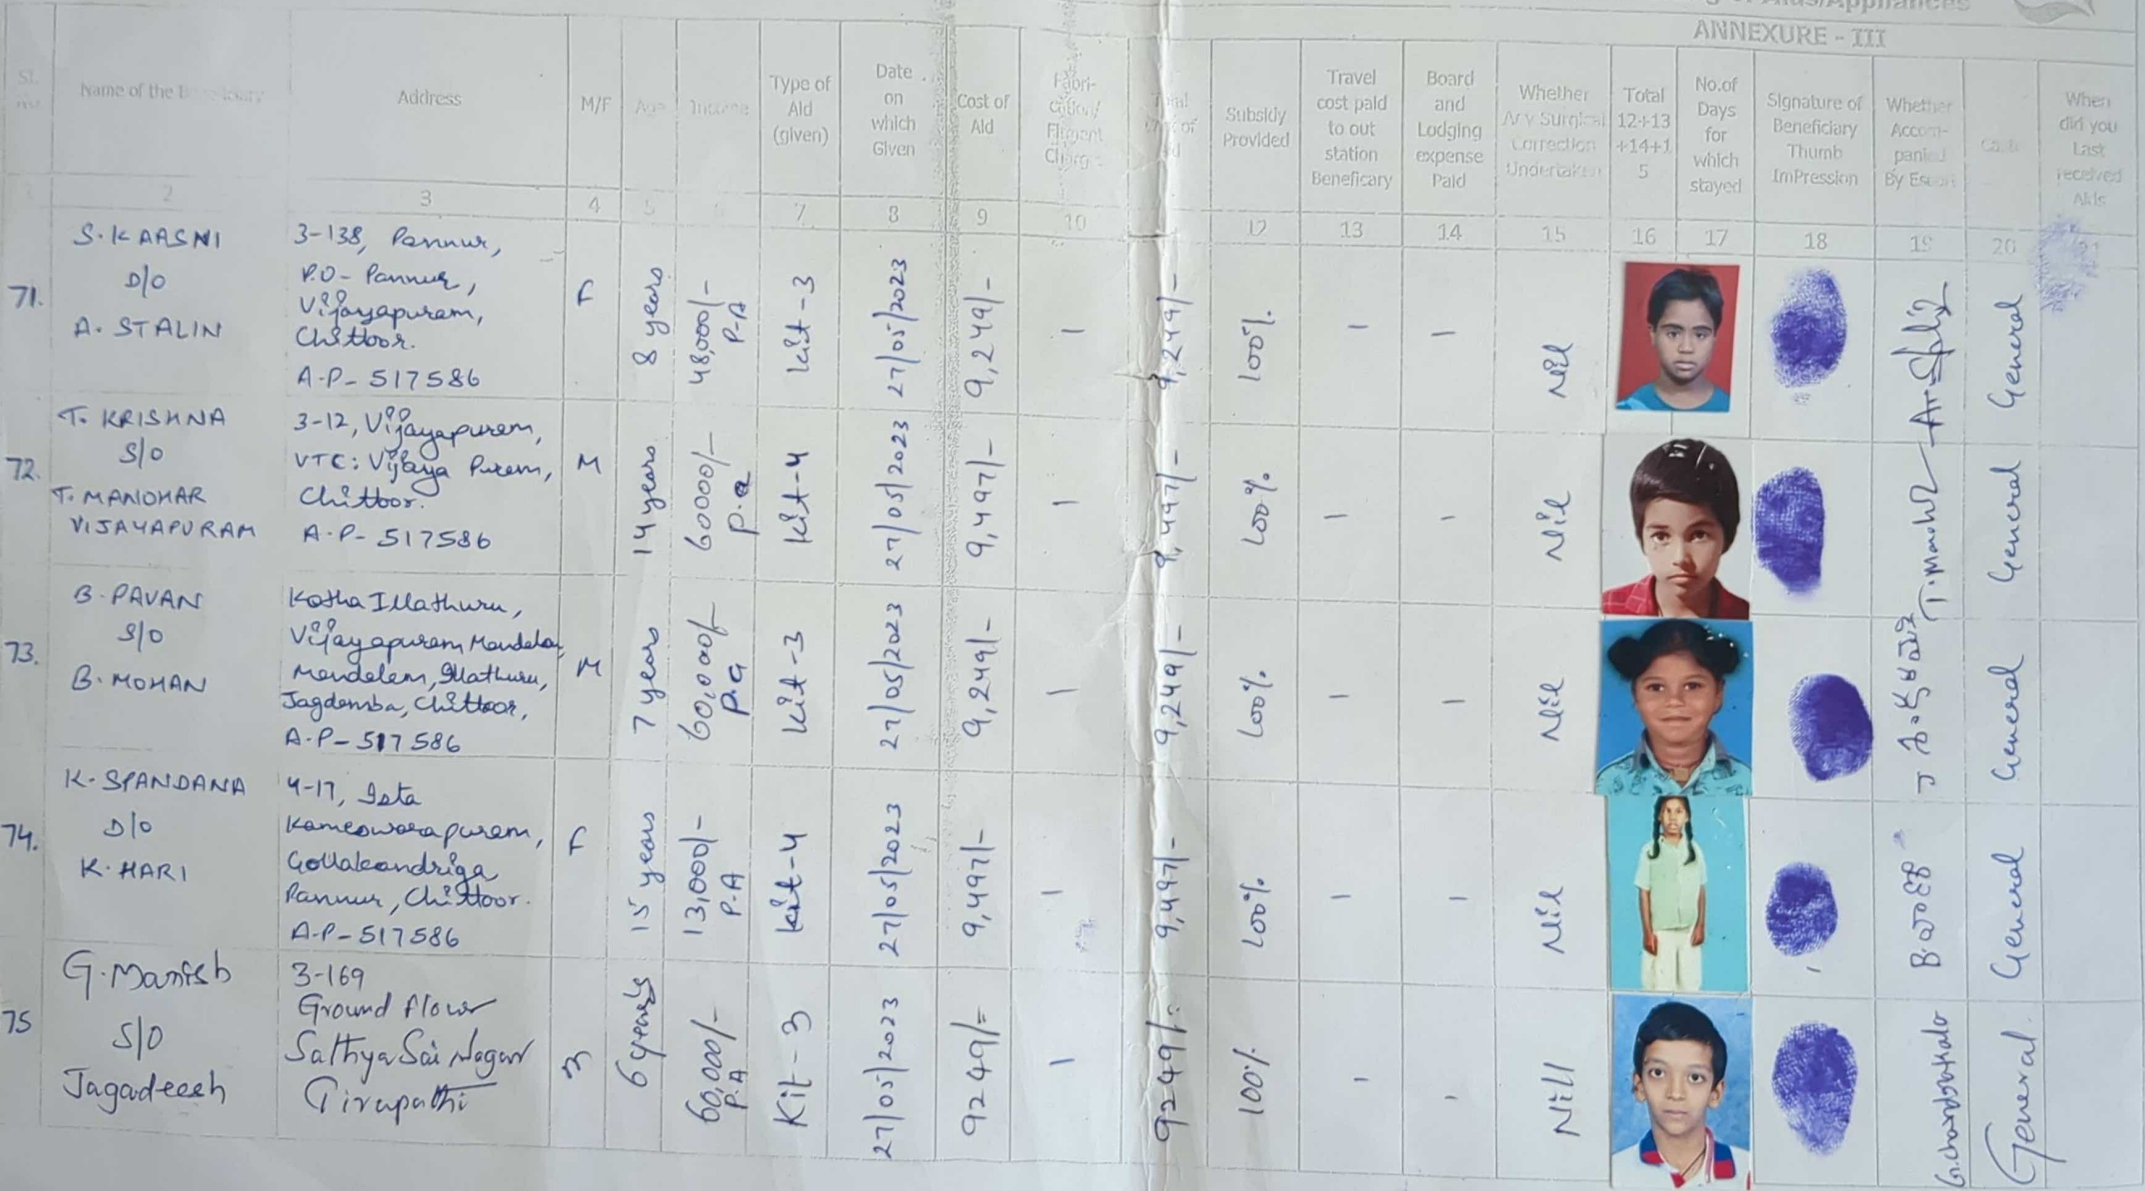 Aids/Appliances
ANNEXURE - III
Sl.
Name of the
Address
M/F
Age
Income
Type of
Aid
(given)
Date
on
which
Given
Cost of
Aid
Fabri-
cation/
Fitment
Charg
Total
of
Subsidy
Provided
Travel
cost paid
to out
station
Beneficary
Board
and
Lodging
expense
Paid
Whether
Any Surgical
Correction
Undertaken
Total
12+13
+14+1
5
No.of
Days
for
which
stayed
Signature of
Beneficiary
Thumb
ImPression
Whether
Accom-
panied
By Escort
When
did you
Last
received
Aids
2
3
4
5
7
8
9
10
12
13
14
15
16
17
18
19
20
21
71.
S. KAASNI
D/O
A. STALIN
3-138, Pannur,
P.O- Pannur,
Vijayapuram,
Chittoor.
A.P- 517586
F
8 years
48,000/-
P.A
Kit-3
27/05/2023
9,249/-
-
9,249/-
100%
-
-
Nil
General
72.
T. KRISHNA
S/O
T. MANOHAR
VIJAYAPURAM
3-12, Vijayapuram,
VTC: Vijaya Puram,
Chittoor.
A.P- 517586
M
14 years
60000/-
p.a
Kit-4
27/05/2023
9,497/-
-
9,497/-
100%
-
-
Nil
General
73.
B. PAVAN
S/O
B. MOHAN
Kotha Illathuru,
Vijayapuram Mandalam,
Mandalam, Illathuru,
Jagdamba, Chittoor,
A.P- 517586
M
7 years
60,000/-
p.a
Kit-3
27/05/2023
9,249/-
-
9,249/-
100%
-
-
Nil
General
74.
K. SPANDANA
D/O
K. HARI
4-17, Ista
Kameswarapuram,
Gollakandriga
Pannur, Chittoor.
A.P- 517586
F
15 years
13,000/-
P.A
Kit-4
27/05/2023
9,497/-
-
9,497/-
100%
-
-
Nil
General
75
G. Manish
S/O
Jagadeesh
3-169
Ground flour
Sathya Sai Nagar
Tirupathi
m
6 years
60,000/-
P.A
Kit-3
27/05/2023
9249/=
-
9249/=
100%
-
-
Nill
G.chandrakala
General.